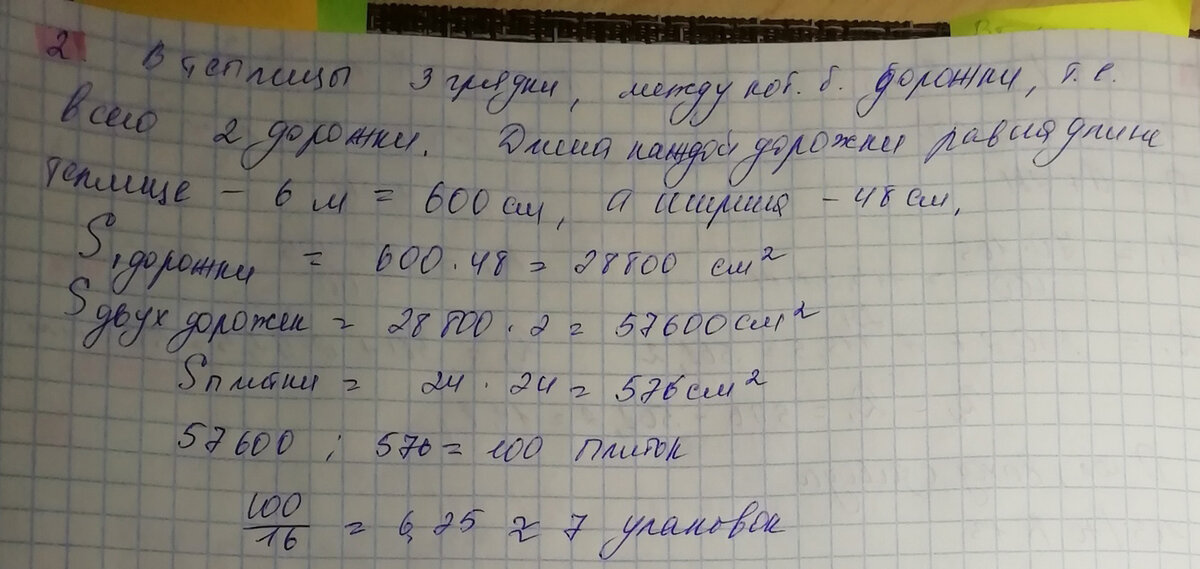 2. В теплицы 3 грядки, между кот. б. дорожки, т.е.
всего 2 дорожки. Длина каждой дорожки равна длине
теплице - 6 м = 600 см, а ширина - 48 см,
S 1 дорожки = 600 · 48 = 28800 см²
S двух дорожек = 28800 · 2 = 57600 см²
S плитки = 24 · 24 = 576 см²
57600 : 576 = 100 плиток
100/16 = 6,25 ≈ 7 упаковок